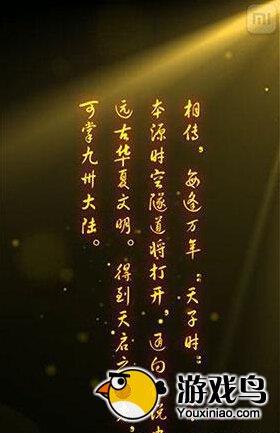 相传，每逢万年：天子时
本源时空隧道将打开，通向
远古华夏文明。得到天启之
可掌九州大陆。
游戏鸟
Youxiniao.com
mi